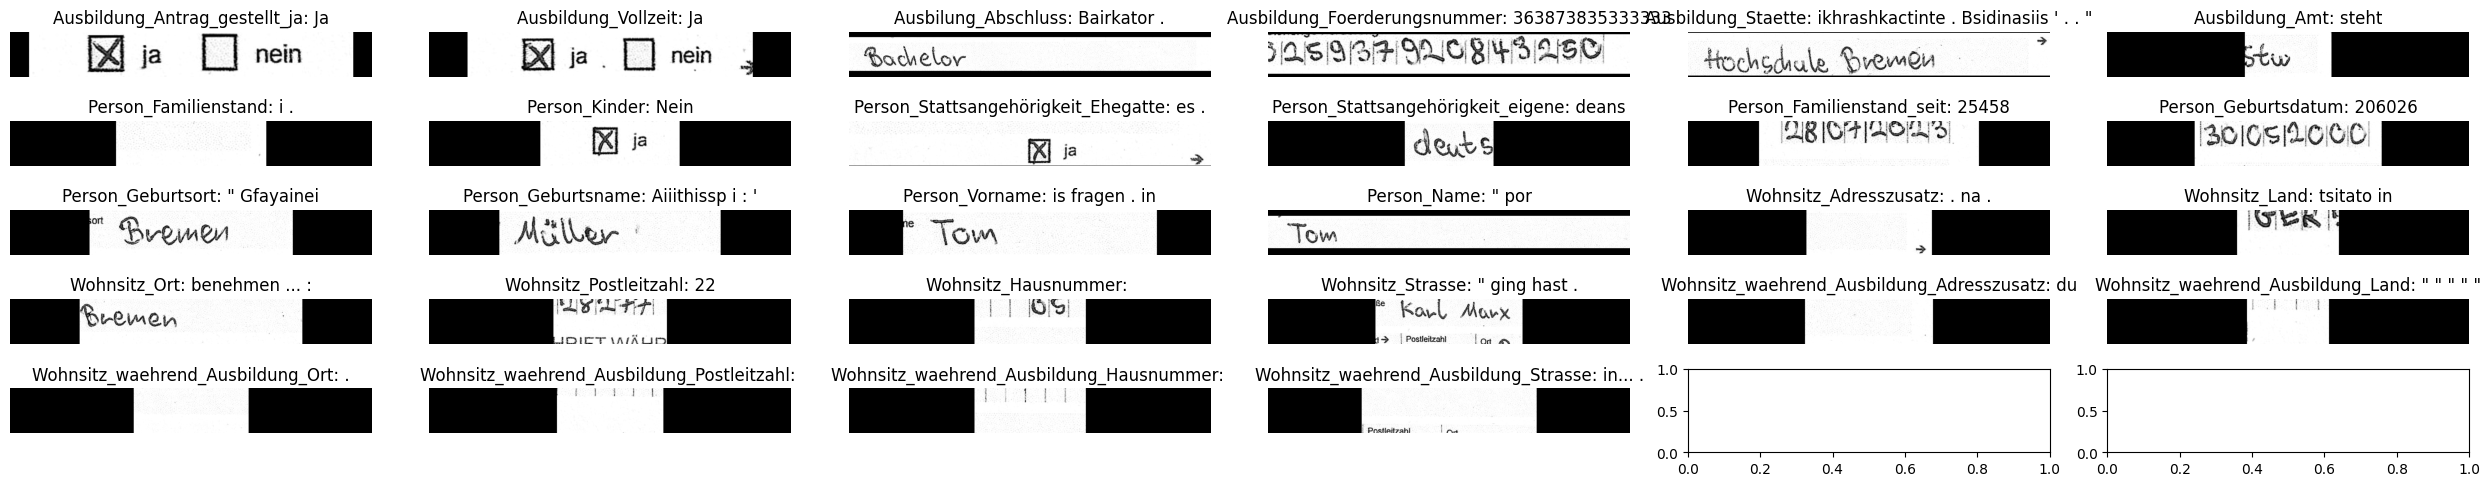 Ausbildung_Antrag_gestellt_ja: Ja
ja nein
Ausbildung_Vollzeit: Ja
ja nein →
Ausbilung_Abschluss: Bairkator .
Bachelor
Ausbildung_Foerderungsnummer: 363873835333333
325937920843250
Ausbildung_Staette: ikhrashkactinte . Bsidinasiis ' . . "
→
Hochschule Bremen
Ausbildung_Amt: steht
Stw
Person_Familienstand: i .
Person_Kinder: Nein
ja
Person_Stattsangehörigkeit_Ehegatte: es .
ja →
Person_Stattsangehörigkeit_eigene: deans
deuts
Person_Familienstand_seit: 25458
28072023
Person_Geburtsdatum: 206026
30052000
Person_Geburtsort: " Gfayainei
sort
Bremen
Person_Geburtsname: Aiiithissp i : '
Müller
Person_Vorname: is fragen . in
me
Tom
Person_Name: " por
Tom
Wohnsitz_Adresszusatz: . na .
→
Wohnsitz_Land: tsitato in
GER
Wohnsitz_Ort: benehmen ... :
Bremen
Wohnsitz_Postleitzahl: 22
28277
HRIFT WÄHR
Wohnsitz_Hausnummer:
05
Wohnsitz_Strasse: " ging hast .
ße
Karl Marx
d → Postleitzahl Ort
Wohnsitz_waehrend_Ausbildung_Adresszusatz: du
Wohnsitz_waehrend_Ausbildung_Land: " " " " "
Wohnsitz_waehrend_Ausbildung_Ort: .
Wohnsitz_waehrend_Ausbildung_Postleitzahl:
Wohnsitz_waehrend_Ausbildung_Hausnummer:
Wohnsitz_waehrend_Ausbildung_Strasse: in... .
Postleitzahl Ort
1.0
0.5
0.0
0.0 0.2 0.4 0.6 0.8 1.0
1.0
0.5
0.0
0.0 0.2 0.4 0.6 0.8 1.0